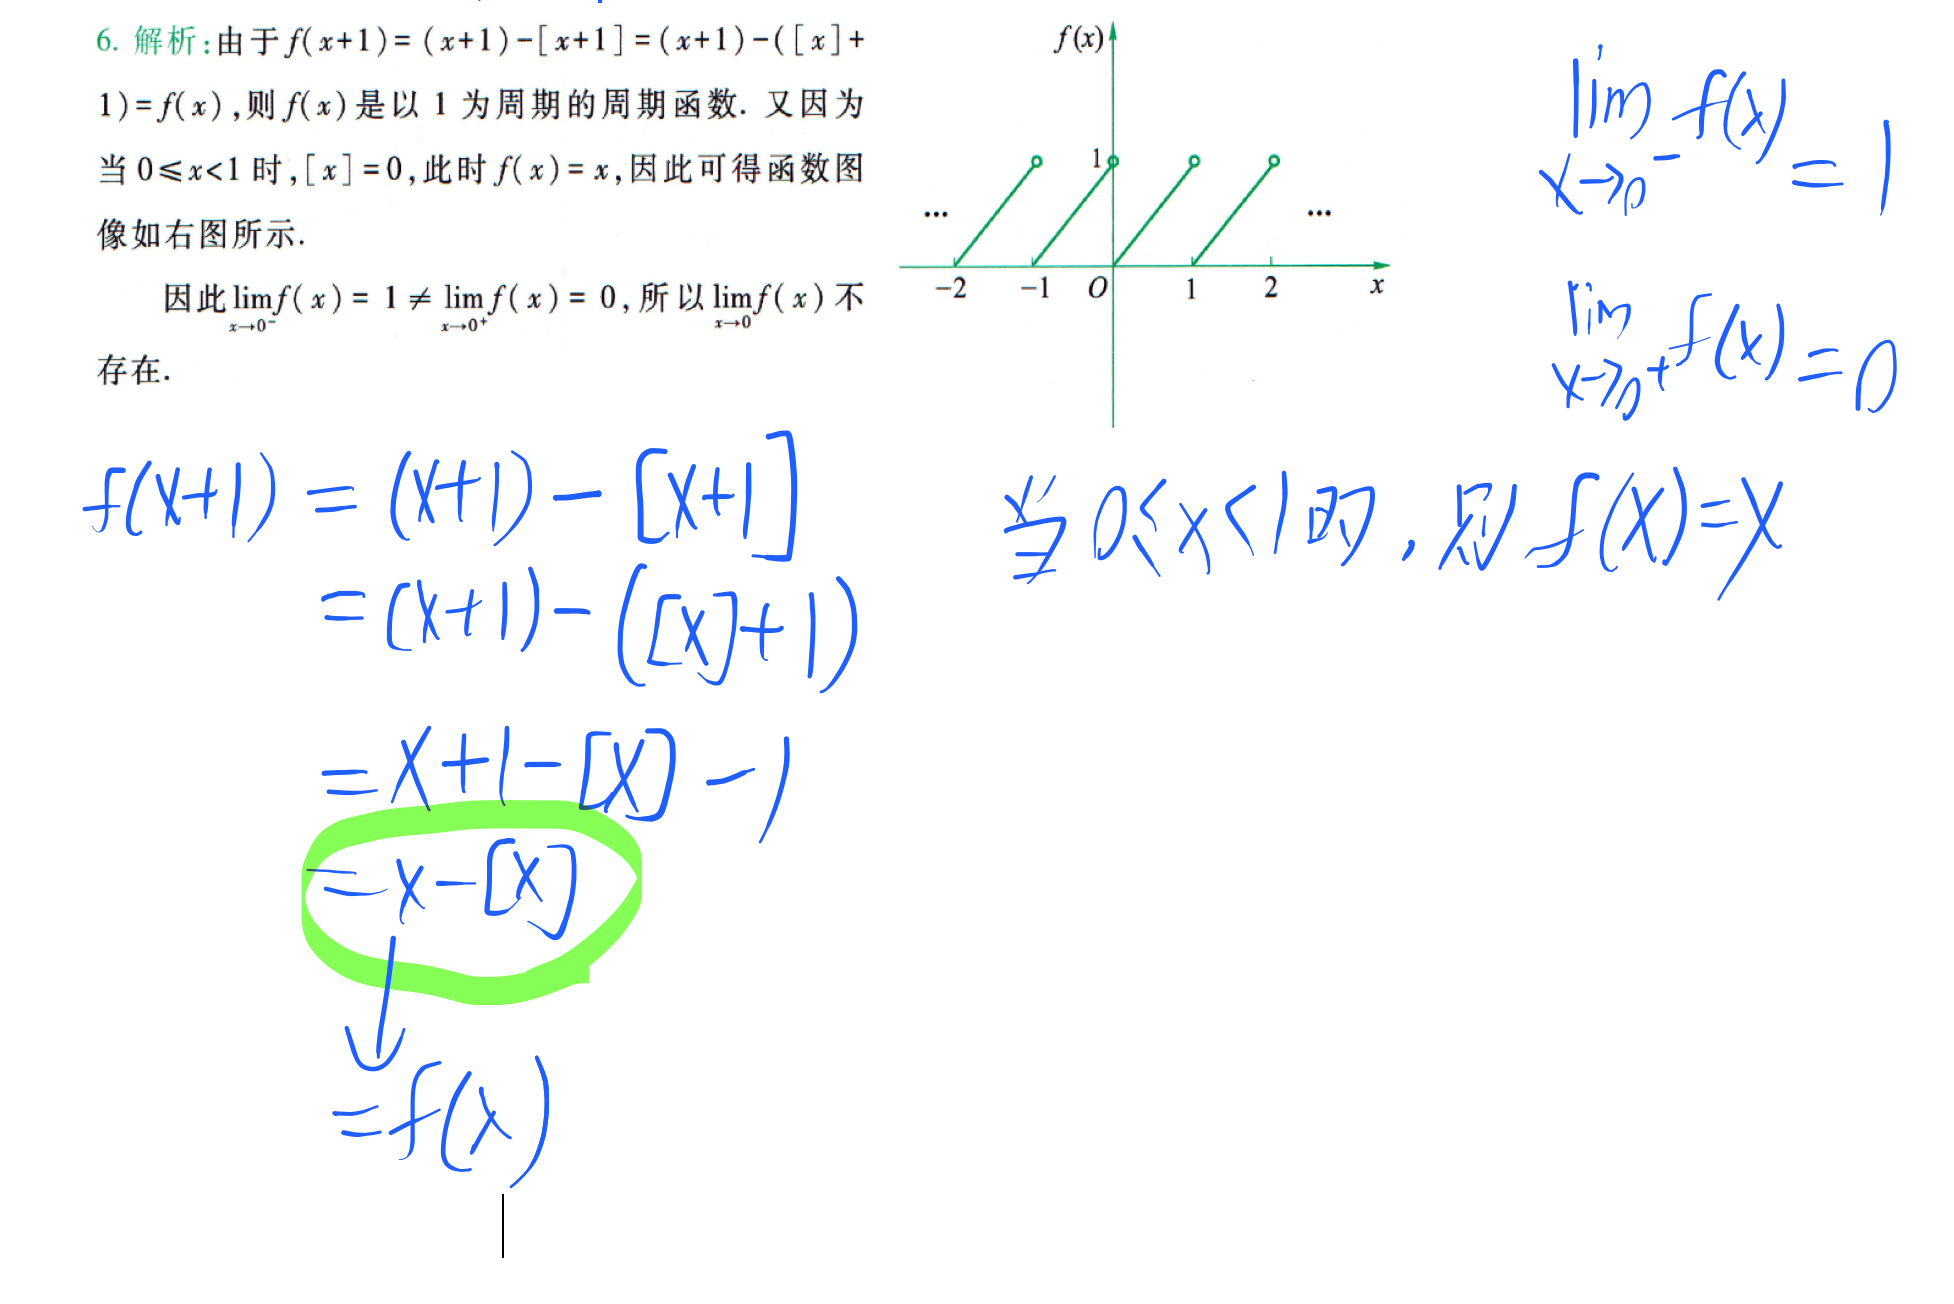 6. 解析:由于 f(x+1)= (x+1)-[x+1]=(x+1)-([x]+
1)=f(x),则 f(x)是以 1 为周期的周期函数. 又因为
当 0≤x<1 时,[x]=0,此时 f(x)= x,因此可得函数图
像如右图所示.
因此 lim f(x)= 1 ≠ lim f(x)= 0,所以 lim f(x)不
x→0⁻ x→0⁺ x→0
存在.
f(x)
1
... ...
-2 -1 O 1 2 x
lim f(x) = 1
x→0⁻
lim f(x) = 0
x→0⁺
f(x+1) = (x+1) - [x+1]
= (x+1) - ([x]+1)
= x+1-[x] -1
= x-[x]
= f(x)
当 0≤x<1时, 则 f(x)=x